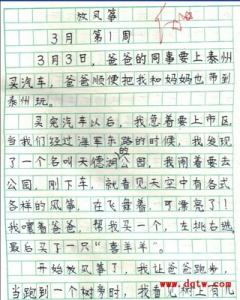 放风筝
3月 第1周
3月3日，爸爸的同事要上泰州
买汽车，爸爸顺便把我和妈妈也带到
泰州玩。
买完汽车以后，我竟着要上市区
当我们经过海军东路的时候，我发现
了一个名叫天德湖的公园，我闹着要去
公园，刚下车，就看见天空中有各式
各样的风筝，在飞舞着，可漂亮了！
我嚷着爸爸，帮我买一个，左挑右选
最后买了一只“喜羊羊”。
开始放风筝了，我让爸爸跑步，
当跑到一个树旁时，我看见树上有几
www.dgtw.com